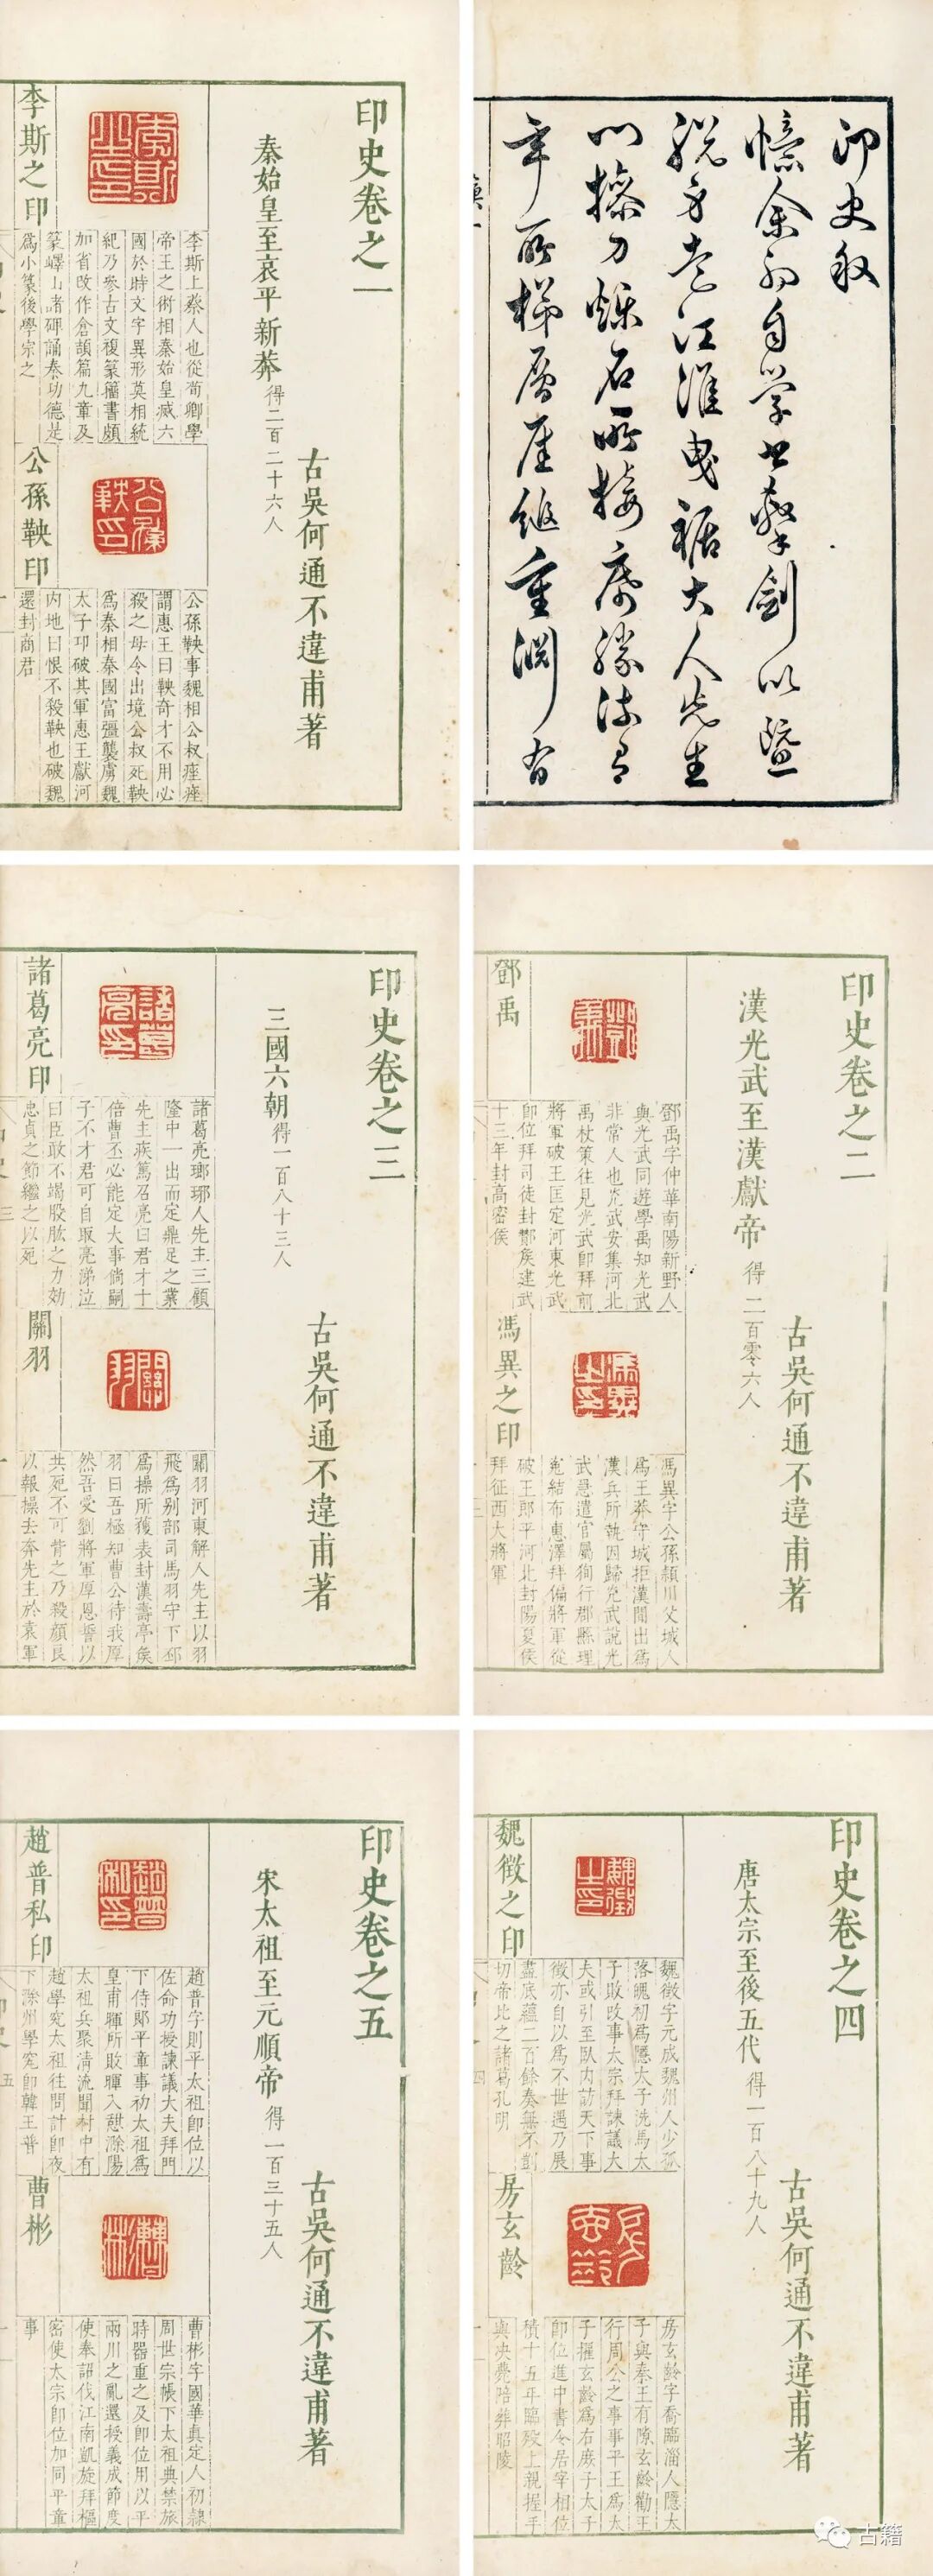 印史敘
憶余初自學書擊劍以暨
脫身走江淮曳裾大人先生
門操刀爍石所接
年所梯層崖縋重淵有
印史卷之一
古吳何通不違甫著
秦始皇至哀平新莽得二百二十六人
李斯之印
李斯上蔡人也從荀卿學
帝王之術相秦始皇滅六
國於時文字異形莫相統
紀乃參古文複篆籒書頗
加省改作倉頡篇九章及
篆嶧山諸碑誦秦功德是
爲小篆後學宗之
公孫鞅印
公孫鞅事魏相公叔痤痤
謂惠王曰鞅奇才不用必
殺之母令出境公叔死鞅
爲秦相秦國富彊襲虜魏
太子卬破其軍惠王獻河
內地曰恨不殺鞅也破魏
還封商君
印史卷之二
古吳何通不違甫著
漢光武至漢獻帝得二百零六人
鄧禹
鄧禹字仲華南陽新野人
與光武同遊學禹知光武
非常人也光武安集河北
禹杖策往見光武即拜前
將軍破王匡定河東光武
即位拜司徒封酇侯建武
十三年封高密侯
馮異之印
馮異字公孫潁川父城人
爲王莽守城拒漢間出爲
漢兵所執因歸光武說光
武急遣官屬徇行郡縣理
冤結布惠澤拜偏將軍從
破王郎平河北封陽夏侯
拜征西大將軍
印史卷之三
古吳何通不違甫著
三國六朝得一百八十三人
諸葛亮印
諸葛亮瑯琊人先主三顧
隆中一出而定鼎足之業
先主疾篤召亮曰君才十
倍曹丕必能定大事倘嗣
子不才君可自取亮涕泣
曰臣敢不竭股肱之力効
忠貞之節繼之以死
關羽
關羽河東解人先主以羽
飛爲别部司馬羽守下邳
爲操所獲表封漢壽亭侯
羽曰吾極知曹公待我厚
然吾受劉將軍厚恩誓以
共死不可背之乃殺顏良
以報操去奔先主於袁軍
印史卷之四
古吳何通不違甫著
唐太宗至後五代得一百八十九人
魏徵之印
魏徵字元成魏州人少孤
落魄初爲隱太子洗馬太
子敗改事太宗拜諫議大
夫或引至臥內訪天下事
徵亦自以爲不世遇乃展
盡底蘊二百餘奏無不剴
切帝比之諸葛孔明
房玄齡
房玄齡字喬臨淄人隱太
子與秦王有隙玄齡勸王
行周公之事事平王爲太
子擢玄齡爲右庶子太子
即位進中書令居宰相位
積十五年臨歿上親握手
與決薨陪葬昭陵
印史卷之五
古吳何通不違甫著
宋太祖至元順帝得一百三十五人
趙普私印
趙普字則平太祖即位以
佐命功授諫議大夫拜門
下侍郎平章事初太祖爲
皇甫暉所敗暉入憇滁陽
太祖兵聚清流聞村中有
趙學究太祖往問計即夜
下滁州學究即韓王普
曹彬
曹彬字國華真定人初隷
周世宗帳下太祖典禁旅
時器重之及即位用以平
兩川之亂還授義成節度
使奉詔伐江南凱旋拜樞
密使太宗即位加同平章
事
古籍